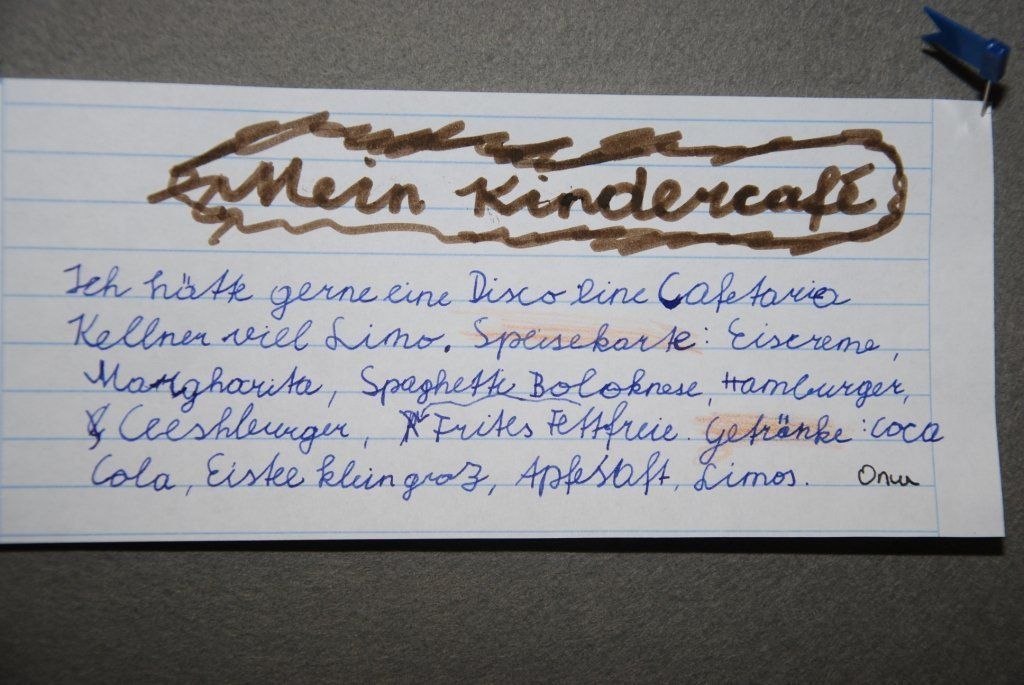 Mein Kindercafé
Ich hätte gerne eine Disco eine Cafetaria
Kellner viel Limo. Speisekarte: Eiscreme,
Margharita, Spaghetti Boloknese, Hamburger,
Ceeshburger, Frites Fettfreie. Getränke: Coca
Cola, Eistee klein groz, Apfelsaft, Limos. Onu